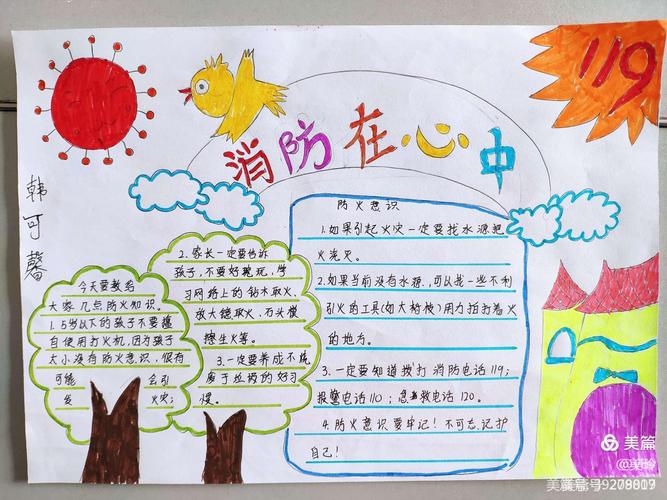 消防在心中
119
韩可馨
今天要教给
大家几点防火知识。
1.5岁以下的孩子不要擅
自使用打火机,因为孩子
太小没有防火意识,很有
可能 会引
发 火灾;
2.家长一定要告诉
孩子,不要好就玩,学
习网络上的钻木取火,
放大镜取火,石头模
擦生火等。
3.一定要养成不烧
废于垃圾的好习
惯。
防火意识
1.如果引起火灾一定要找水源把
火浇灭。
2.如果当前没有水源,可以找一些不利
引火的工具(如大树枝)用力拍打着火
的地方。
3.一定要知道拨打消防电话119;
报警电话110;急救电话120。
4.防火意识要牢记!不可忘记护
自己!
美篇